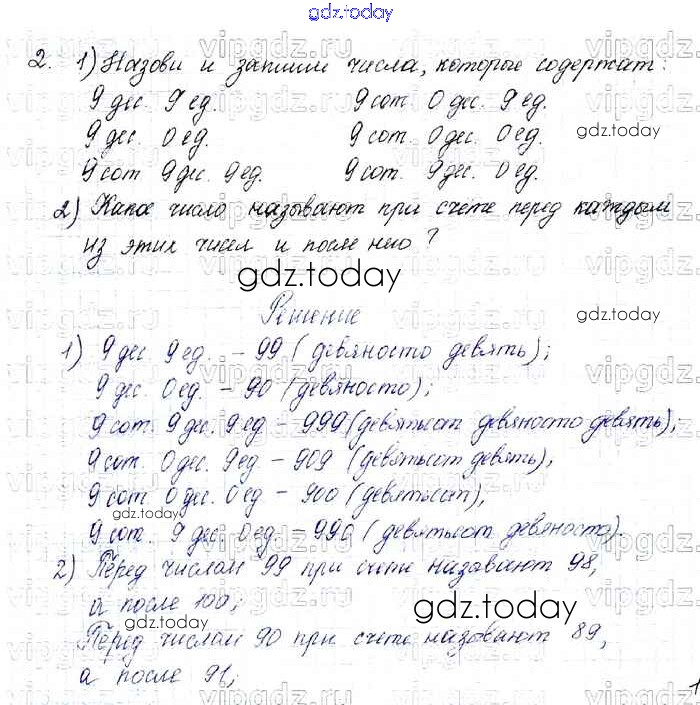 gdz.today
2. 1) Назови и запиши числа, которые содержат:
9 дес. 9 ед. 9 сот. 0 дес. 9 ед.
9 дес. 0 ед. 9 сот. 0 дес. 0 ед.
gdz.today
9 сот 9 дес. 9 ед. 9 сот. 9 дес. 0 ед.
2) Какое число называют при счете перед каждым
из этих чисел и после него?
gdz.today
Решение
gdz.today
1) 9 дес 9 ед. - 99 (девяносто девять);
9 дес. 0 ед. - 90 (девяносто);
9 сот. 9 дес. 9 ед - 999 (девятьсот девяносто девять);
9 сот. 0 дес. 9 ед - 909 (девятьсот девять),
9 сот 0 дес. 0 ед - 900 (девятьсот),
gdz.today
9 сот. 9 дес. 0 ед. - 990 (девятьсот девяносто).
2) Перед числом 99 при счете называют 98,
а после 100;
gdz.today
Перед числом 90 при счете называют 89,
а после 91;
1
vipgdz.ru